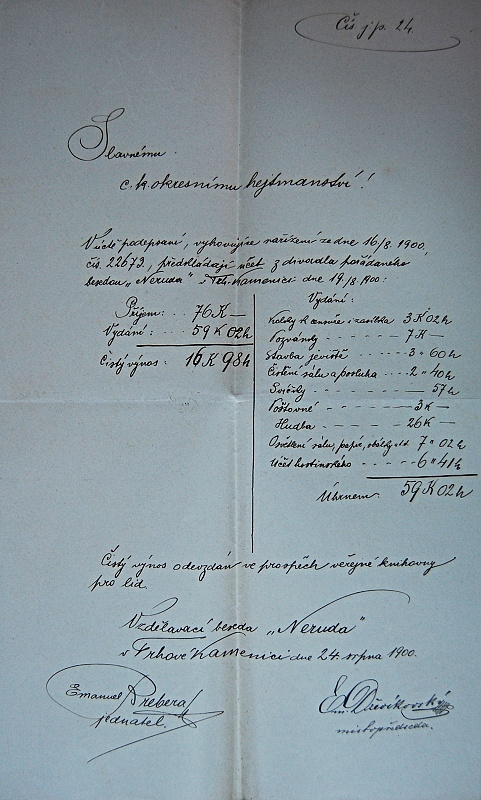 Čís. j. p. 24.
Slavnému
c. k. okresnímu hejtmanství!
V úctě podepsaní, vyhovujíce nařízení ze dne 16/8 1900,
čís. 22673, předkládají účet z divadla pořádaného
besedou „Neruda" v Trh. Kamenici dne 19./8. 1900:
Příjem: 76 K —
Vydání: 59 K 02 h
Čistý výnos: 16 K 98 h
Vydání:
Kolky k censuře i zásilka 3 K 02 h
Pozvánky 7 K —
Stavba jeviště 3 „ 60 h
Čištění sálu a posluha 2 „ 40 h
Svíčky 57 h
Poštovné 3 K —
Hudba 26 K —
Osvětlení sálu, papír, obálky atd. 7 „ 02 h
Účet hostinského 6 „ 41 h
Úhrnem 59 K 02 h
Čistý výnos odevzdán ve prospěch veřejné knihovny
pro lid.
Vzdělávací beseda „Neruda"
v Trhové Kamenici dne 24. srpna 1900.
Emanuel
jednatel.
místopředseda.